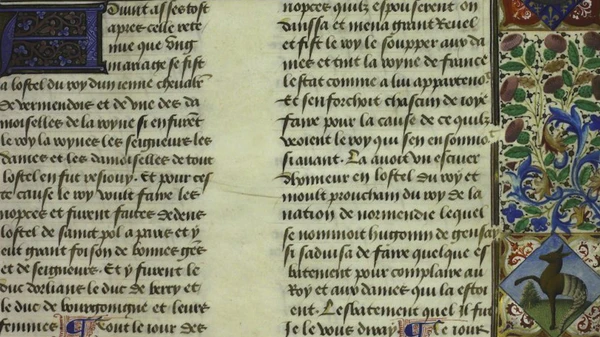 Advint assez tost
apres celle rete
nue que ung
mariage se fist
a lostel du roy dun ienne chevalr
de vermendois et de une des da
moiselles de la royne si en furet
le roy la roynes les seigneurs les
dames et les damoiselles de tout
lostel en fut resiouy. Et pour ces
te cause le roy voult faire les
nopces et furent faites dedens
lostel de sainct pol a paris et y
eut grant foison de bonnes gēs
et de seigneurs. Et y furent le
duc dorlians le duc de berry et
le duc de bourgongne et leurs
femmes Tout le iour des
nopces quilz espouserent on
danssa et mena grant Revel
et fist le roy le soupper aux da
mes et tint la royne de france
lestat comme a lui appartenoit
Et sen forchoit chascun de ioye
faire pour la cause de ce quilz
veoient le roy qui sen ensonnioit
si avant. La avoit un escuier
dhonneur en lostel du roy et
moult prouchain du roy de la
nation de normendie lequel
se nommoit hugonin de gensay
si sadvisa de faire quelque es
batement pour complaire au
Roy et aux dames qui la estoi
ent. Lesbatement quel il fut
Je le vous diray Le iour